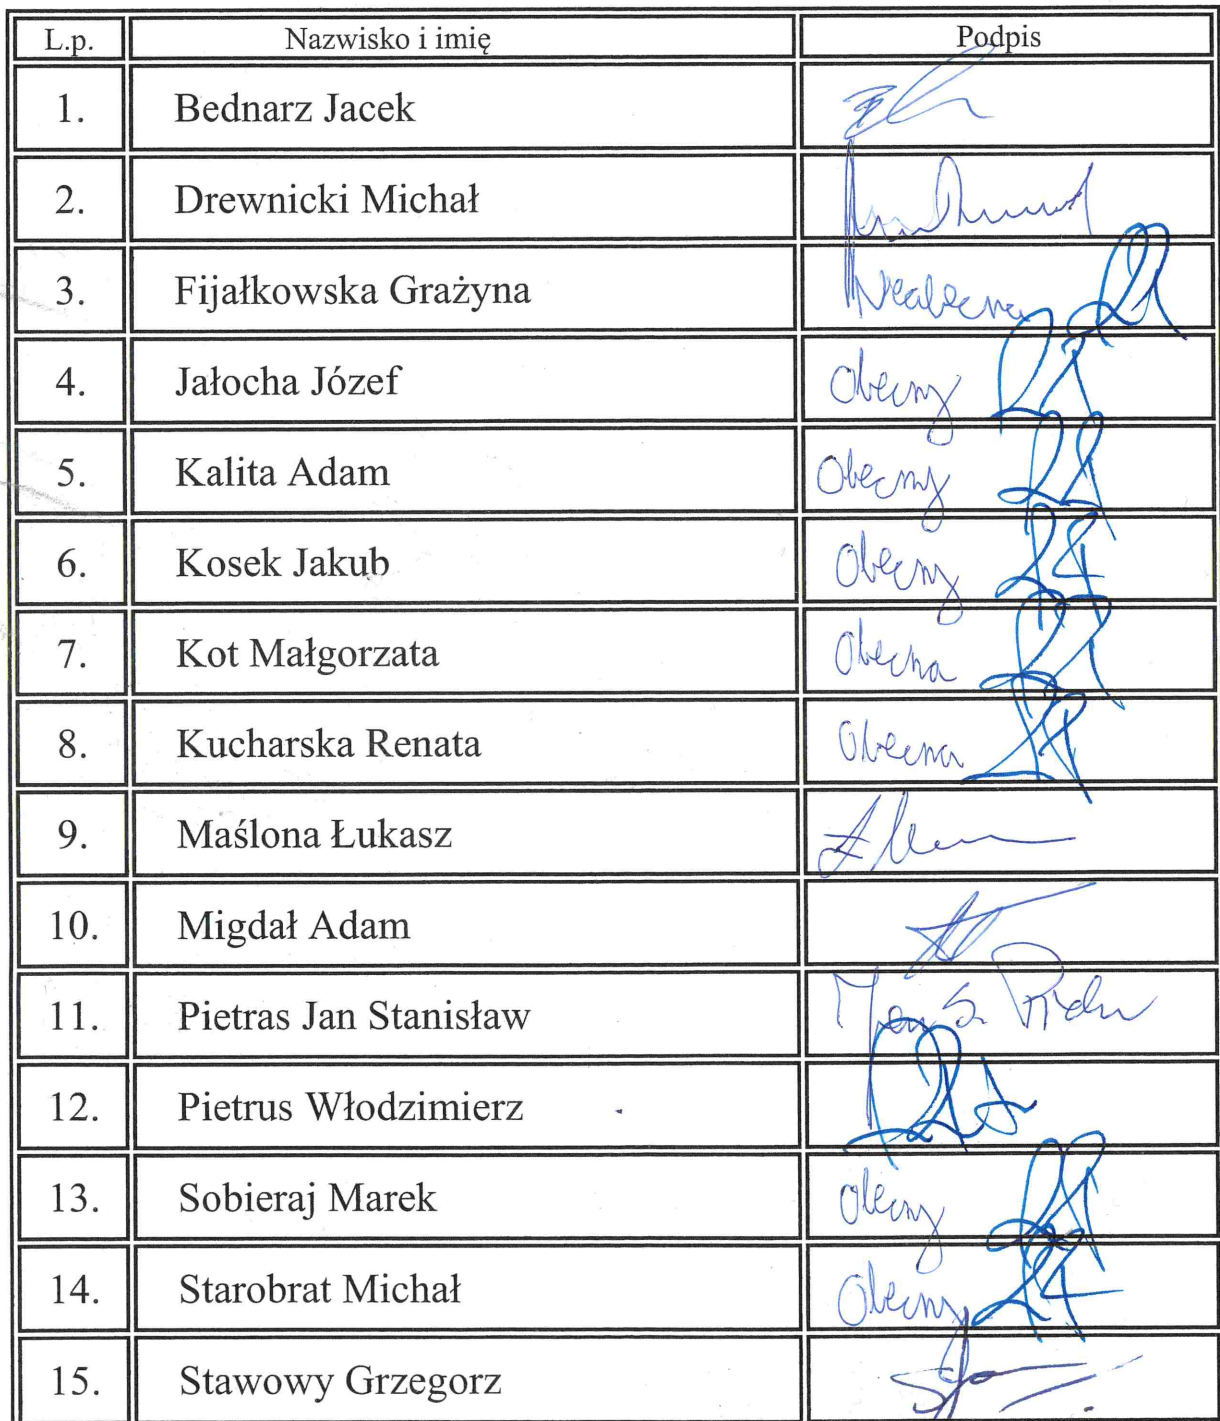 L.p. Nazwisko i imię Podpis
1. Bednarz Jacek
2. Drewnicki Michał
3. Fijałkowska Grażyna Nieobecna
4. Jałocha Józef Obecny
5. Kalita Adam Obecny
6. Kosek Jakub Obecny
7. Kot Małgorzata Obecna
8. Kucharska Renata Obecna
9. Maślona Łukasz
10. Migdał Adam
11. Pietras Jan Stanisław Jan S.
12. Pietrus Włodzimierz
13. Sobieraj Marek Obecny
14. Starobrat Michał Obecny
15. Stawowy Grzegorz